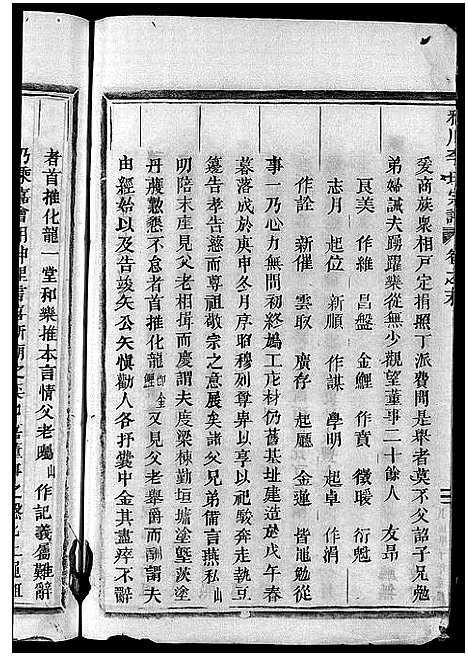 李氏宗譜
爰商族衆相戸定捐照丁派費間是舉者莫不父詔子兄勉
弟婦誡夫踴躍樂從無少觀望董事二十餘人 友昂
良美 作維 昌盤 金鯉 作賁 徵暖 衍魁
志月 起位 新成 作謀 學明 起卓 作渭
作詮 新催 雲馭 廣存 起廳 金蓮 皆黽勉從
事一乃心力無間終始鳩工庀材仍舊基址建造於戊午春
暮落成於庚申冬月序昭穆別尊卑以享以祀駿奔走執豆
籩告孝告慈敬宗之意展矣諸父兄弟備言燕私山
明陪末座見父老相對而慶謂夫度梁棟勤垣墉塗墍茨塗
丹雘懃懇不怠者首推化龍 又見父老舉爵而酬謂夫
由經始以及告竣矢公矢愼勸人各抒囊中金其盡瘁不辭
者首推化龍一堂和樂推本言情父老囑山 作記義屬難辭